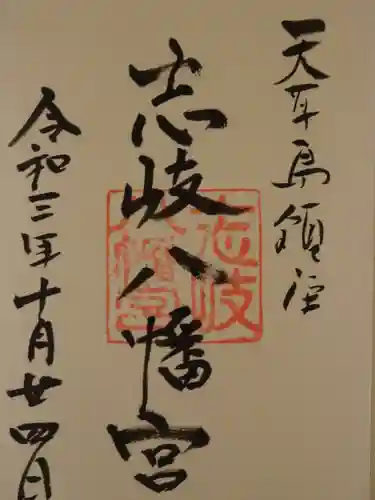 天草島鎮座
志岐八幡宮
令和三年十月廿四日
志岐
八幡宮